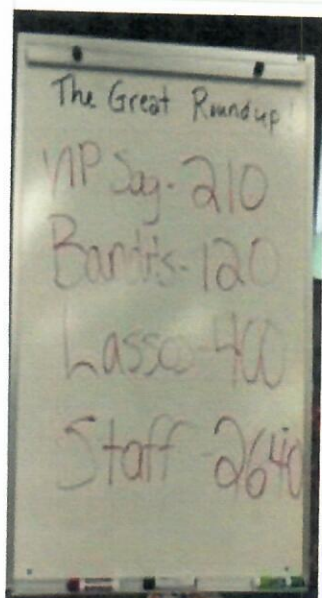 The Great Roundup!
NP Sag - 210
Bandits - 120
Lasso - 400
Staff - 2640